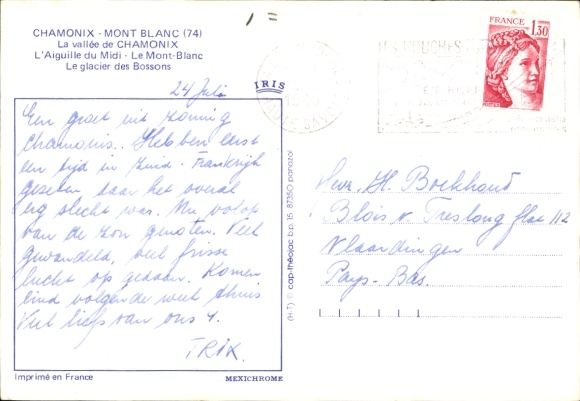 CHAMONIX - MONT BLANC (74)
La vallée de CHAMONIX
L'Aiguille du Midi - Le Mont-Blanc
Le glacier des Bossons
IRIS
24 Juli
Een groet uit zonnig
Chamonix. Hebben eerst
een tijd in Zuid-Frankrijk
gezeten waar het overal
erg slecht was. Nu volop
van de zon genoten. Veel
gewandeld, veel frisse
lucht op gedaan. Komen
eind volgende week thuis
Veel liefs van ons 4.
TRIX.
Imprimé en France
MEXICHROME
(H-T) © cap-théojac b.p. 15 87350 panazol
FRANCE
1,30
Hr. H. Boekhoud
Blois v. Treslong flat 112
Vlaardingen
Pays-Bas.